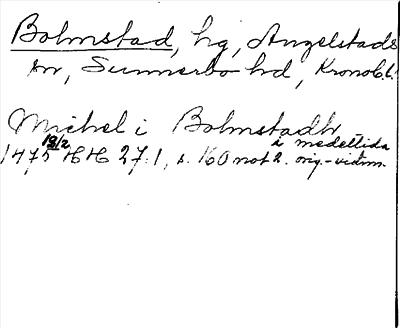 Bolmstad, hg, Angelstads
sn, Sunnerbo hd, Kronob. l.
Michel i Bolmstadh
1475 19/2 HH 27:1, s. 160 not 2. i medeltida orig.-vidim.